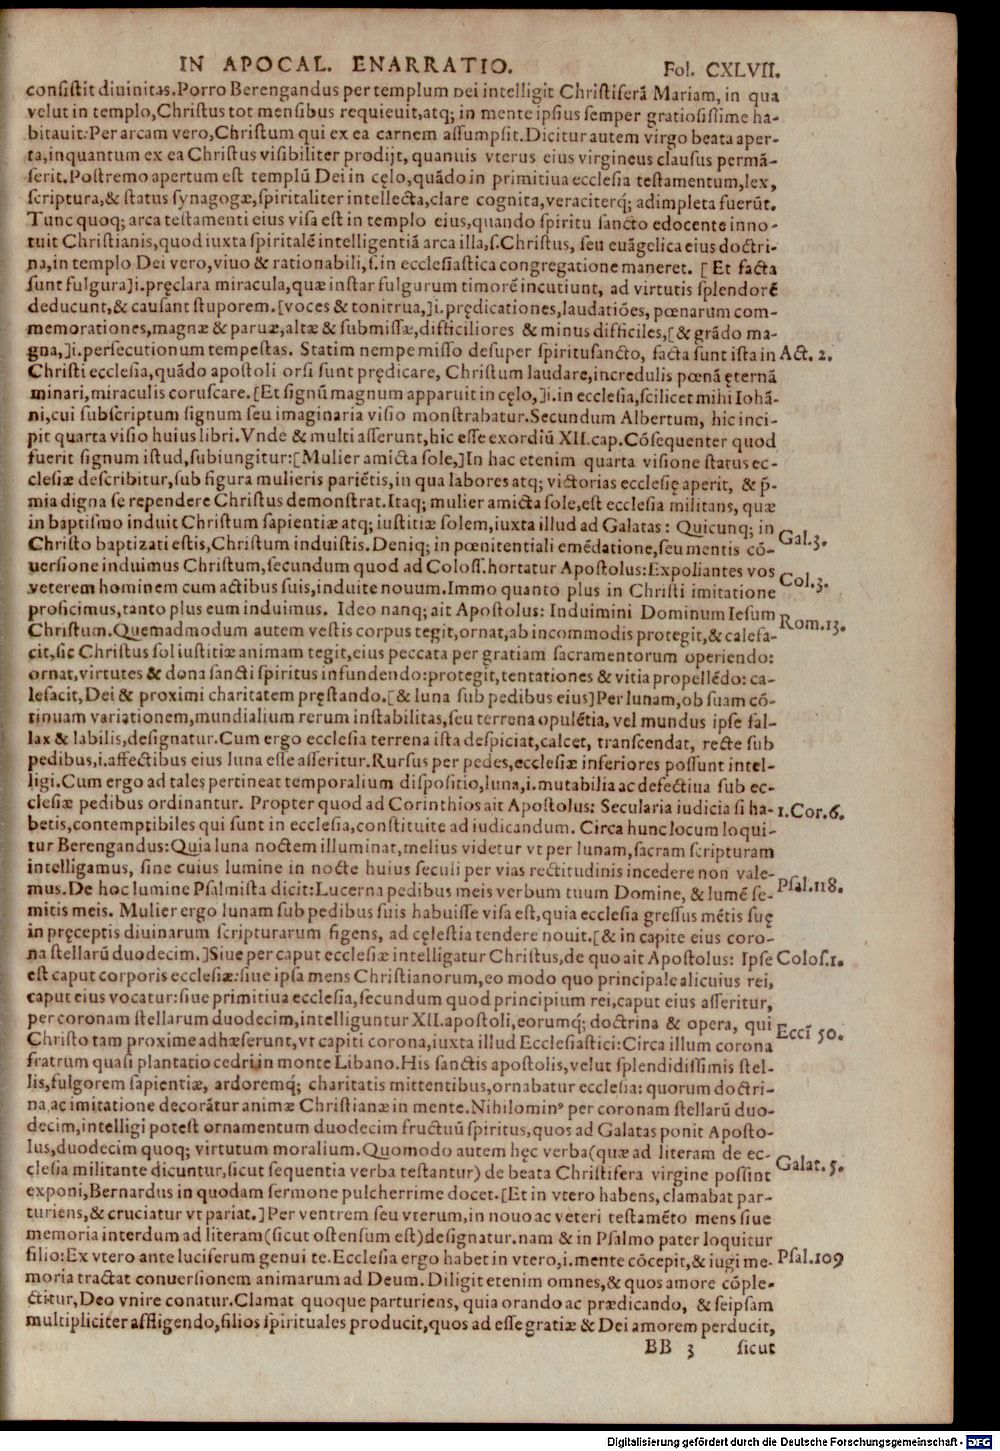 IN APOCAL. ENARRATIO. Fol. CXLVII.
consistit diuinitas.Porro Berengandus per templum Dei intelligit Christiferā Mariam, in qua
velut in templo,Christus tot mensibus requieuit,atq; in mente ipsius semper gratiosissime ha-
bitauit:Per arcam vero,Christum qui ex ea carnem assumpsit.Dicitur autem virgo beata aper-
ta,inquantum ex ea Christus visibiliter prodijt, quanuis vterus eius virgineus clausus permā-
serit.Postremo apertum est templū Dei in cęlo,quādo in primitiua ecclesia testamentum,lex,
scriptura,& status synagogæ,spiritaliter intellecta,clare cognita,veraciterq́; adimpleta fuerūt.
Tunc quoq; arca testamenti eius visa est in templo eius,quando spiritu sancto edocente inno-
tuit Christianis,quod iuxta spiritalē intelligentiā arca illa,s.Christus, seu euāgelica eius doctri-
na,in templo Dei vero,viuo & rationabili,s.in ecclesiastica congregatione maneret. [Et facta
sunt fulgura]i.pręclara miracula,quæ instar fulgurum timorē incutiunt, ad virtutis splendorē
deducunt,& causant stuporem.[voces & tonitrua,]i.prędicationes,laudatiōes, pœnarum com-
memorationes,magnæ & paruæ,altæ & submissæ,difficiliores & minus difficiles,[& grādo ma-
gna,]i.persecutionum tempestas. Statim nempe misso desuper spiritusancto, facta sunt ista in Act. 2.
Christi ecclesia,quādo apostoli orsi sunt prędicare, Christum laudare,incredulis pœnā ęternā
minari,miraculis coruscare.[Et signū magnum apparuit in cęlo,]i.in ecclesia,scilicet mihi Iohā-
ni,cui subscriptum signum seu imaginaria visio monstrabatur.Secundum Albertum, hic inci-
pit quarta visio huius libri.Vnde & multi asserunt,hic esse exordiū XII.cap.Cōsequenter quod
fuerit signum istud,subiungitur:[Mulier amicta sole,]In hac etenim quarta visione status ec-
clesiæ describitur,sub figura mulieris pariētis,in qua labores atq; victorias ecclesię aperit, & p̄-
mia digna se rependere Christus demonstrat.Itaq; mulier amicta sole,est ecclesia militans, quæ
in baptismo induit Christum sapientiæ atq; iustitiæ solem,iuxta illud ad Galatas: Quicunq; in Gal.3.
Christo baptizati estis,Christum induistis.Deniq; in pœnitentiali emēdatione,seu mentis cō-
uersione induimus Christum,secundum quod ad Coloss.hortatur Apostolus:Expoliantes vos Col.3.
veterem hominem cum actibus suis,induite nouum.Immo quanto plus in Christi imitatione
proficimus,tanto plus eum induimus. Ideo nanq; ait Apostolus: Induimini Dominum Iesum Rom.13.
Christum.Quemadmodum autem vestis corpus tegit,ornat,ab incommodis protegit,& calefa-
cit,sic Christus sol iustitiæ animam tegit,eius peccata per gratiam sacramentorum operiendo:
ornat,virtutes & dona sancti spiritus infundendo:protegit,tentationes & vitia propellēdo: ca-
lefacit,Dei & proximi charitatem pręstando.[& luna sub pedibus eius]Per lunam,ob suam cō-
tinuam variationem,mundialium rerum instabilitas,seu terrena opulētia, vel mundus ipse fal-
lax & labilis,designatur.Cum ergo ecclesia terrena ista despiciat,calcet, transcendat, recte sub
pedibus,i.affectibus eius luna esse asseritur.Rursus per pedes,ecclesiæ inferiores possunt intel-
ligi.Cum ergo ad tales pertineat temporalium dispositio,luna,i.mutabilia ac defectiua sub ec-
clesiæ pedibus ordinantur. Propter quod ad Corinthios ait Apostolus: Secularia iudicia si ha- 1.Cor.6.
betis,contemptibiles qui sunt in ecclesia,constituite ad iudicandum. Circa hunc locum loqui-
tur Berengandus:Quia luna noctem illuminat,melius videtur vt per lunam,sacram scripturam
intelligamus, sine cuius lumine in nocte huius seculi per vias rectitudinis incedere non vale-
mus.De hoc lumine Psalmista dicit:Lucerna pedibus meis verbum tuum Domine, & lumē se- Psal.118.
mitis meis. Mulier ergo lunam sub pedibus suis habuisse visa est,quia ecclesia gressus mētis suę
in pręceptis diuinarum scripturarum figens, ad cęlestia tendere nouit.[& in capite eius coro-
na stellarū duodecim.]Siue per caput ecclesiæ intelligatur Christus,de quo ait Apostolus: Ipse Colos.1.
est caput corporis ecclesiæ:siue ipsa mens Christianorum,eo modo quo principale alicuius rei,
caput eius vocatur:siue primitiua ecclesia,secundum quod principium rei,caput eius asseritur,
per coronam stellarum duodecim,intelliguntur XII.apostoli,eorumq́; doctrina & opera, qui Eccī 50.
Christo tam proxime adhæserunt,vt capiti corona,iuxta illud Ecclesiastici:Circa illum corona
fratrum quasi plantatio cedri in monte Libano.His sanctis apostolis,velut splendidissimis stel-
lis,fulgorem sapientiæ, ardoremq́; charitatis mittentibus,ornabatur ecclesia: quorum doctri-
na ac imitatione decorātur animæ Christianæ in mente.Nihilominꝰ per coronam stellarū duo-
decim,intelligi potest ornamentum duodecim fructuū spiritus,quos ad Galatas ponit Aposto-
lus,duodecim quoq; virtutum moralium.Quomodo autem hęc verba(quæ ad literam de ec- Galat.5.
clesia militante dicuntur,sicut sequentia verba testantur) de beata Christifera virgine possint
exponi,Bernardus in quodam sermone pulcherrime docet.[Et in vtero habens, clamabat par-
turiens,& cruciatur vt pariat.]Per ventrem seu vterum,in nouo ac veteri testamēto mens siue
memoria interdum ad literam(sicut ostensum est)designatur.nam & in Psalmo pater loquitur
filio:Ex vtero ante luciferum genui te.Ecclesia ergo habet in vtero,i.mente cōcepit,& iugi me- Psal.109
moria tractat conuersionem animarum ad Deum. Diligit etenim omnes,& quos amore cōple-
ctitur,Deo vnire conatur.Clamat quoque parturiens, quia orando ac prædicando, & seipsam
multipliciter affligendo,filios spirituales producit,quos ad esse gratiæ & Dei amorem perducit,
BB 3 sicut
Digitalisierung gefördert durch die Deutsche Forschungsgemeinschaft - DFG